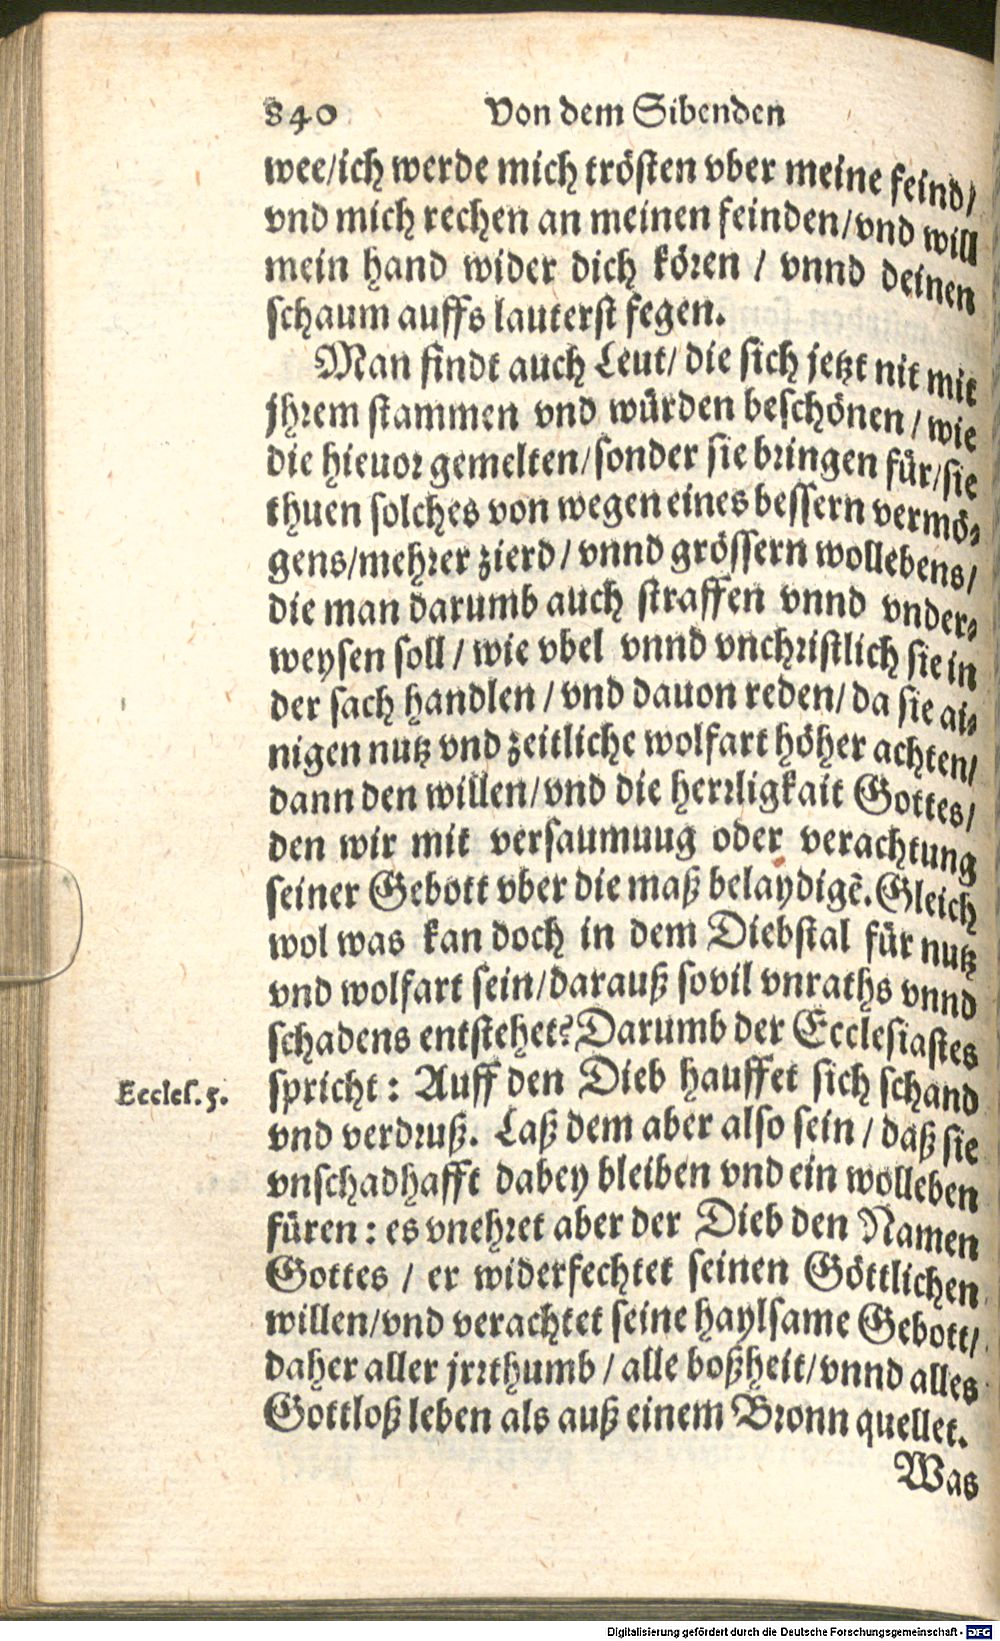 840 Von dem Sibenden
wee/ich werde mich trösten vber meine feind/
vnd mich rechen an meinen feinden/vnd will
mein hand wider dich kören / vnnd deinen
schaum auffs lauterst fegen.
Man findt auch Leut/ die sich jetzt nit mit
jhrem stammen vnd würden beschönen / wie
die hieuor gemelten/sonder sie bringen für/sie
thuen solches von wegen eines bessern vermö-
gens/mehrer zierd/ vnnd grössern wollebens/
die man darumb auch straffen vnnd vnder-
weysen soll / wie vbel vnnd vnchristlich sie in
der sach handlen / vnd dauon reden/ da sie ai-
nigen nutz vnd zeitliche wolfart höher achten/
dann den willen/vnd die herrligkait Gottes/
den wir mit versaumuug oder verachtung
seiner Gebott vber die maß belaydigẽ. Gleich
wol was kan doch in dem Diebstal für nutz
vnd wolfart sein/darauß sovil vnraths vnnd
schadens entstehet? Darumb der Ecclesiastes
Eccles. 5. spricht: Auff den Dieb hauffet sich schand
vnd verdruß. Laß dem aber also sein / daß sie
vnschadhafft dabey bleiben vnd ein wolleben
füren: es vnehret aber der Dieb den Namen
Gottes / er widerfechtet seinen Göttlichen
willen/vnd verachtet seine haylsame Gebott/
daher aller jrrthumb / alle boßheit/vnnd alles
Gottloß leben als auß einem Bronn quellet.
Was
Digitalisierung gefördert durch die Deutsche Forschungsgemeinschaft - DFG